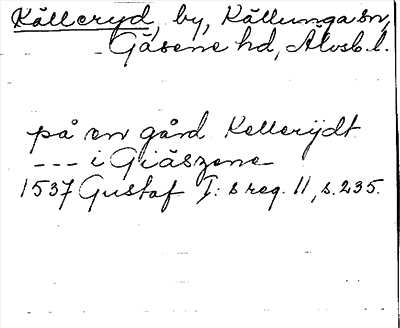 Källeryd, by, Källunga sn,
Gäsene hd, Älvsb. l.
på en gård Kellerÿdt
--- i Giäszene
1537 Gustaf I:s reg. 11, s. 235.